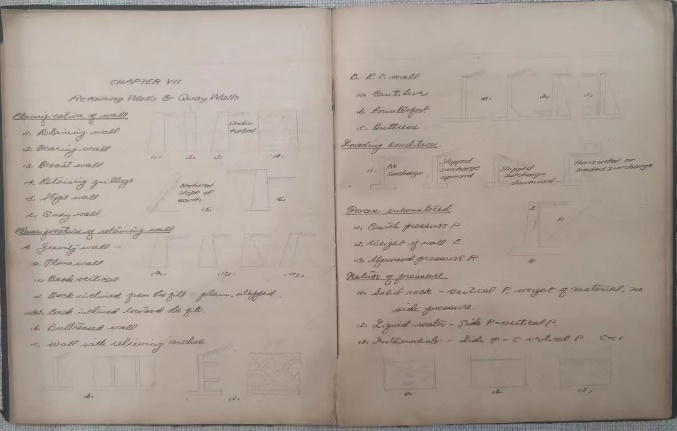 CHAPTER VII
Retaining Walls & Quay Walls
Classification of wall
1. Retaining wall
2. Bearing wall
3. Breast wall
4. Retaining grillage
5. Slope wall
6. Quay wall
Undis
turbed
1. 2. 3. 4.
Natural
slope of
earth
5. 6.
Classification of retaining wall
A. Gravity wall –
a. Plane wall
1. Back vertical
2. Back inclined from the fill – plain, stepped.
3. Back inclined toward the fill.
b. Buttressed wall
c. Wall with relieving arches
b. c.
B. R.C. wall
a. Cantilever
b. Counterfort
c. Buttress
a. b. c.
Loading condition
No
surcharge
Slopped
surcharge
upward
Slopped
surcharge
downward
Horizontal or
loaded surcharge
Forces encountered
1. Earth pressure P
2. Weight of wall E.
3. Upward pressure R.
Nature of pressure.
1. Solid rock – vertical P, weight of material, no
side pressure
2. Liquid water – side P = vertical P.
3. Intermediate – side P = C vertical P C<1
1. 2. 3.